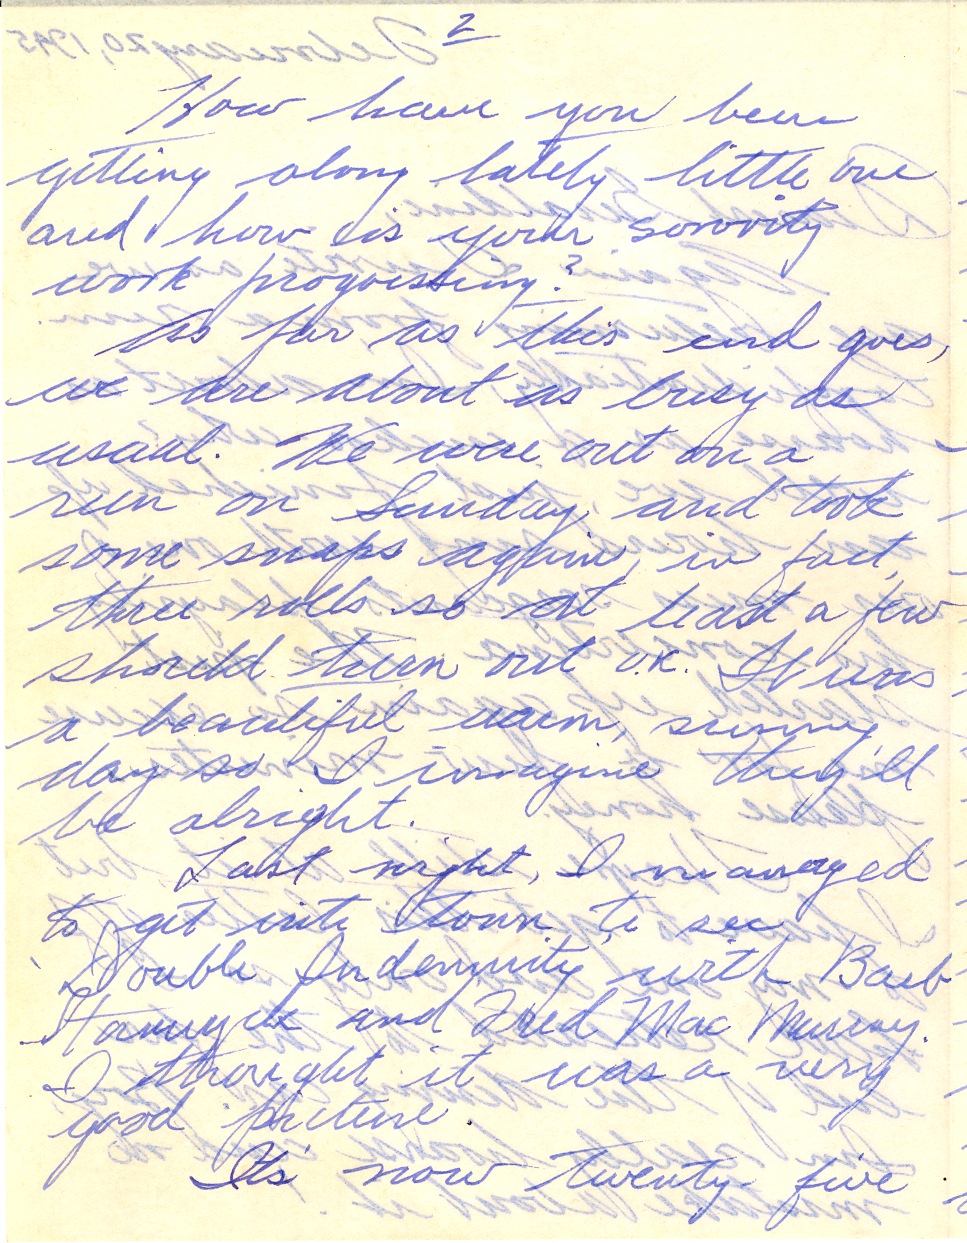 2
How have you been
getting along lately little one
and how is your sorority
work progressing?
As far as this end goes,
we are about as busy as
usual. We were out on a
run on Sunday, and took
some snaps again, in fact,
three rolls so at least a few
should turn out o.k. It was
a beautiful warm, sunny
day so I imagine they'll
be alright.
Last night, I managed
to get into town to see
'Double Indemnity' with Barb
Stanwyck and Fred Mac Murray.
I thought it was a very
good picture.
It's now twenty five